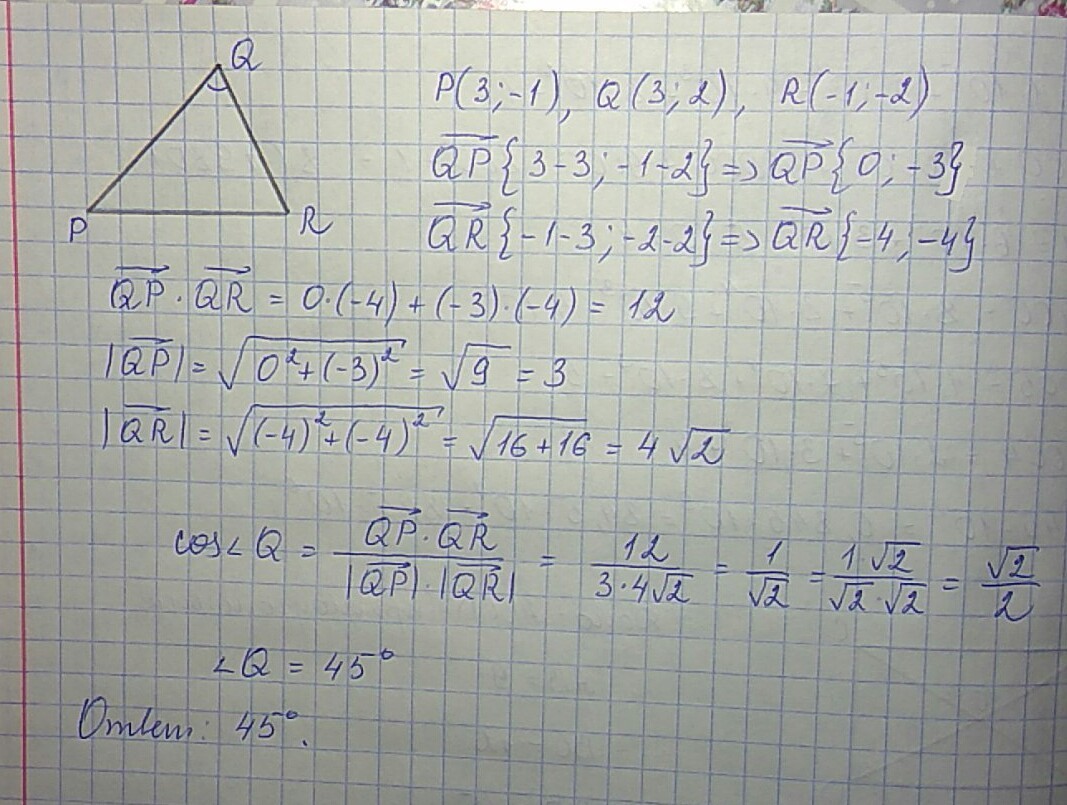 Q
P R
P(3;-1), Q(3;2), R(-1;-2)
$\overrightarrow{QP}${3-3; -1-2} => $\overrightarrow{QP}${0; -3}
$\overrightarrow{QR}${-1-3; -2-2} => $\overrightarrow{QR}${-4; -4}
$\overrightarrow{QP}$ · $\overrightarrow{QR}$ = 0·(-4) + (-3)·(-4) = 12
|$\overrightarrow{QP}$| = √(0² + (-3)²) = √9 = 3
|$\overrightarrow{QR}$| = √((-4)² + (-4)²) = √(16+16) = 4√2
cos∠Q = $\frac{\overrightarrow{QP} \cdot \overrightarrow{QR}}{|\overrightarrow{QP}| \cdot |\overrightarrow{QR}|}$ = $\frac{12}{3 \cdot 4\sqrt{2}}$ = $\frac{1}{\sqrt{2}}$ = $\frac{1 \cdot \sqrt{2}}{\sqrt{2} \cdot \sqrt{2}}$ = $\frac{\sqrt{2}}{2}$
∠Q = 45°
Ответ: 45°.